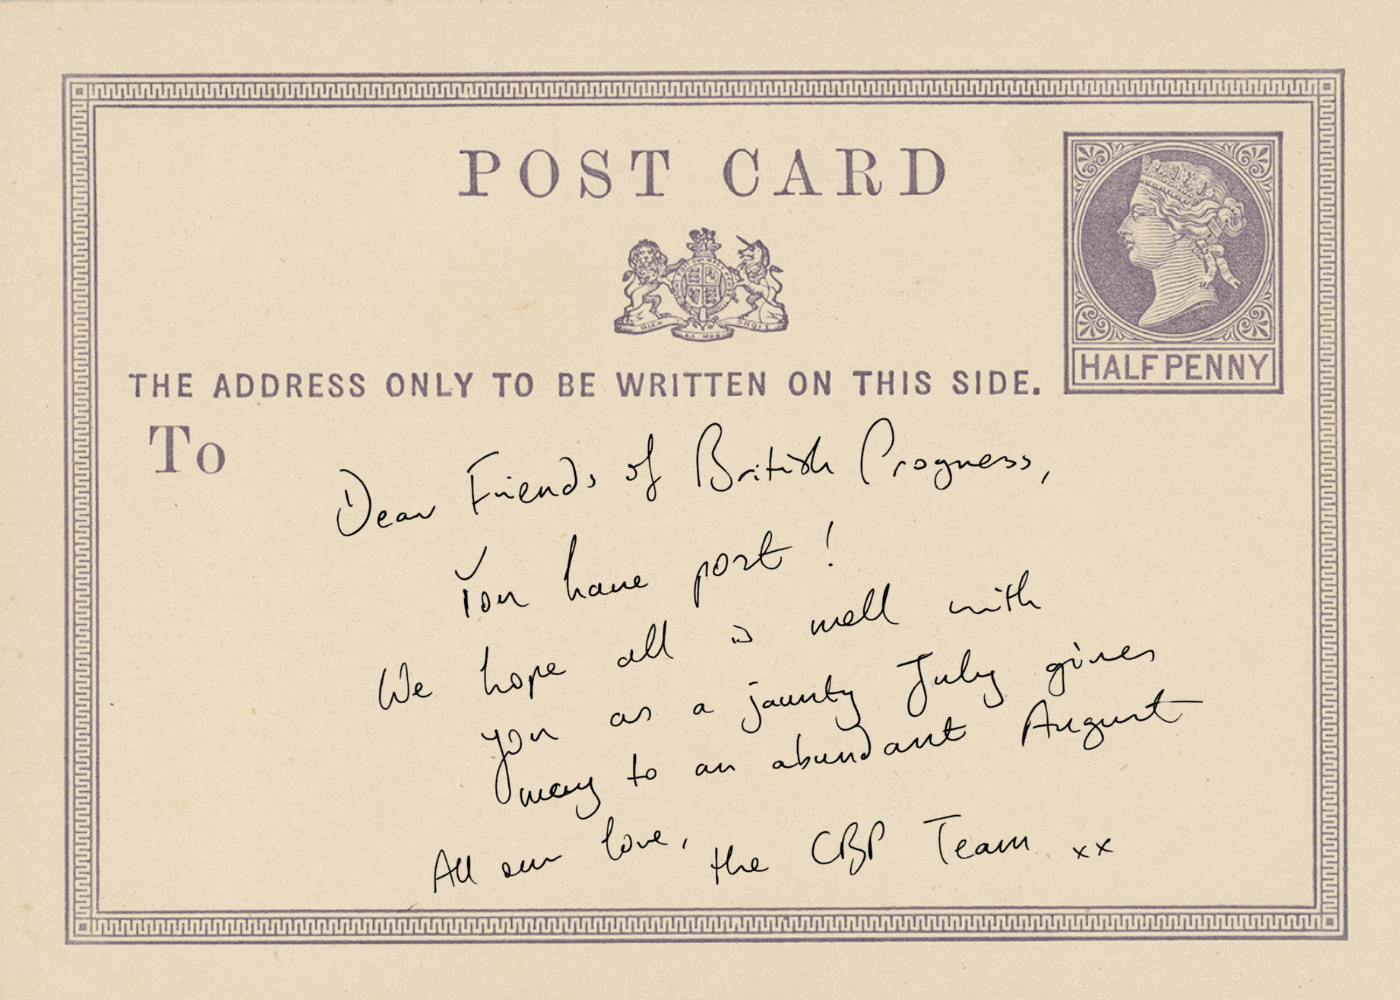 POST CARD
HALFPENNY
THE ADDRESS ONLY TO BE WRITTEN ON THIS SIDE.
To
Dear Friends of British Progress,
You have post!
We hope all is well with
you as a jaunty July gives
way to an abundant August
All our love, the CBP Team xx